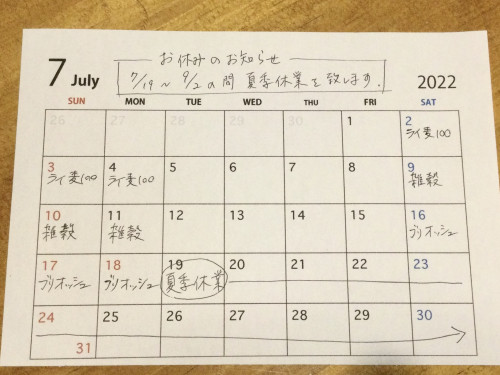 お休みのお知らせ
7/19～9/2の間 夏季休業を致します!
7 July 2022
SUN MON TUE WED THU FRI SAT
26 27 28 29 30 1 2
ライ麦100
3 4 5 6 7 8 9
ライ麦100 ライ麦100 雑穀
10 11 12 13 14 15 16
雑穀 雑穀 ブリオッシュ
17 18 19 20 21 22 23
ブリオッシュ ブリオッシュ 夏季休業
24 25 26 27 28 29 30
31